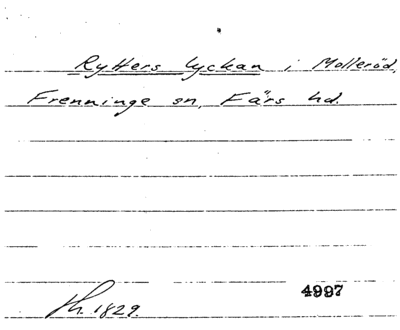 Rytters lyckan i Molleröd,
Frenninge sn, Färs hd.
4997
1829.